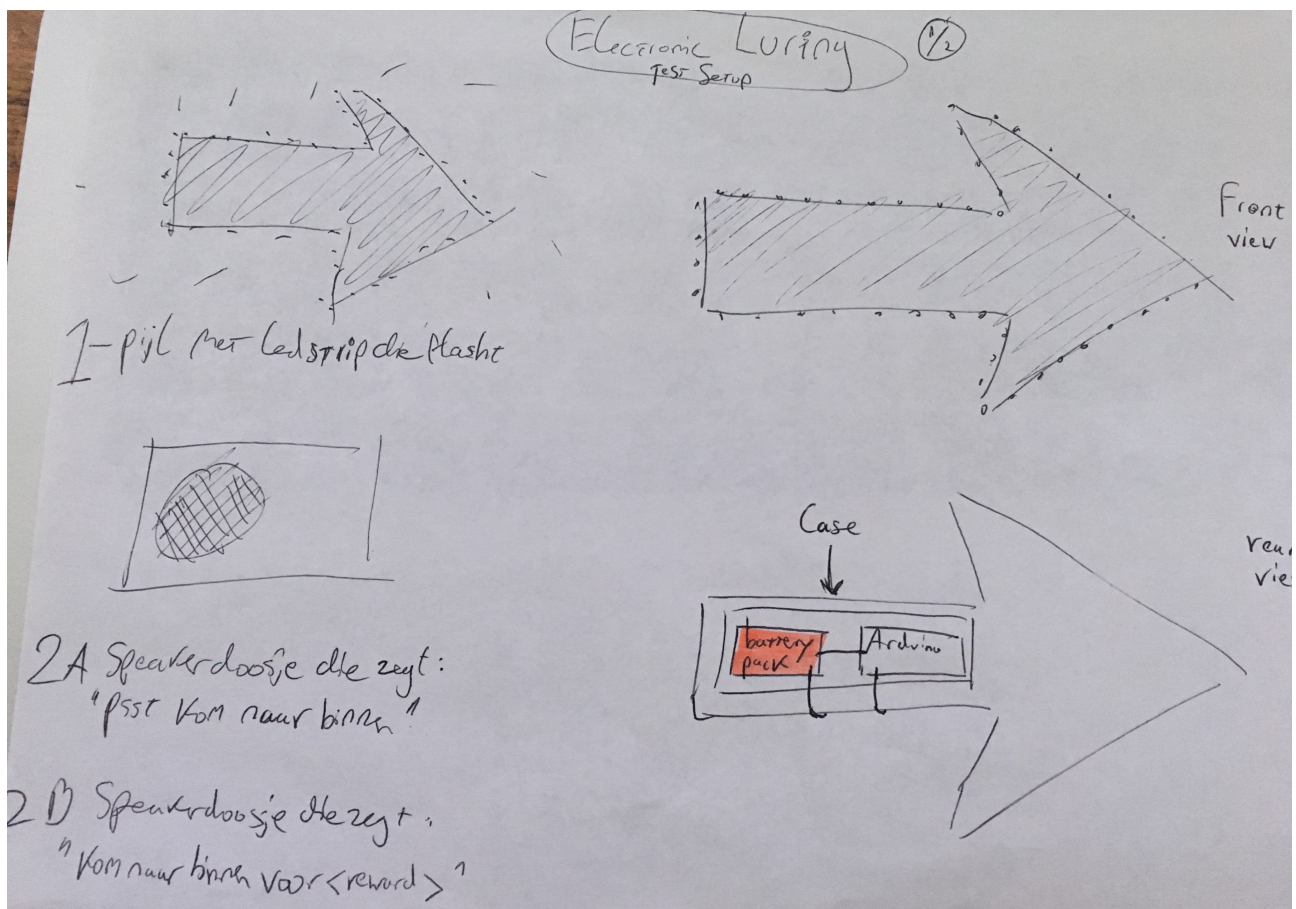 Electronic Luring
Test Setup
1/2
Front
view
1-pijl met ledstrip die flasht
Case
rear
vie
battery
pack
Arduino
2A Speakerdoosje die zegt:
"psst kom naar binnen"
2B Speakerdoosje die zegt:
"kom naar binnen voor <reward>"